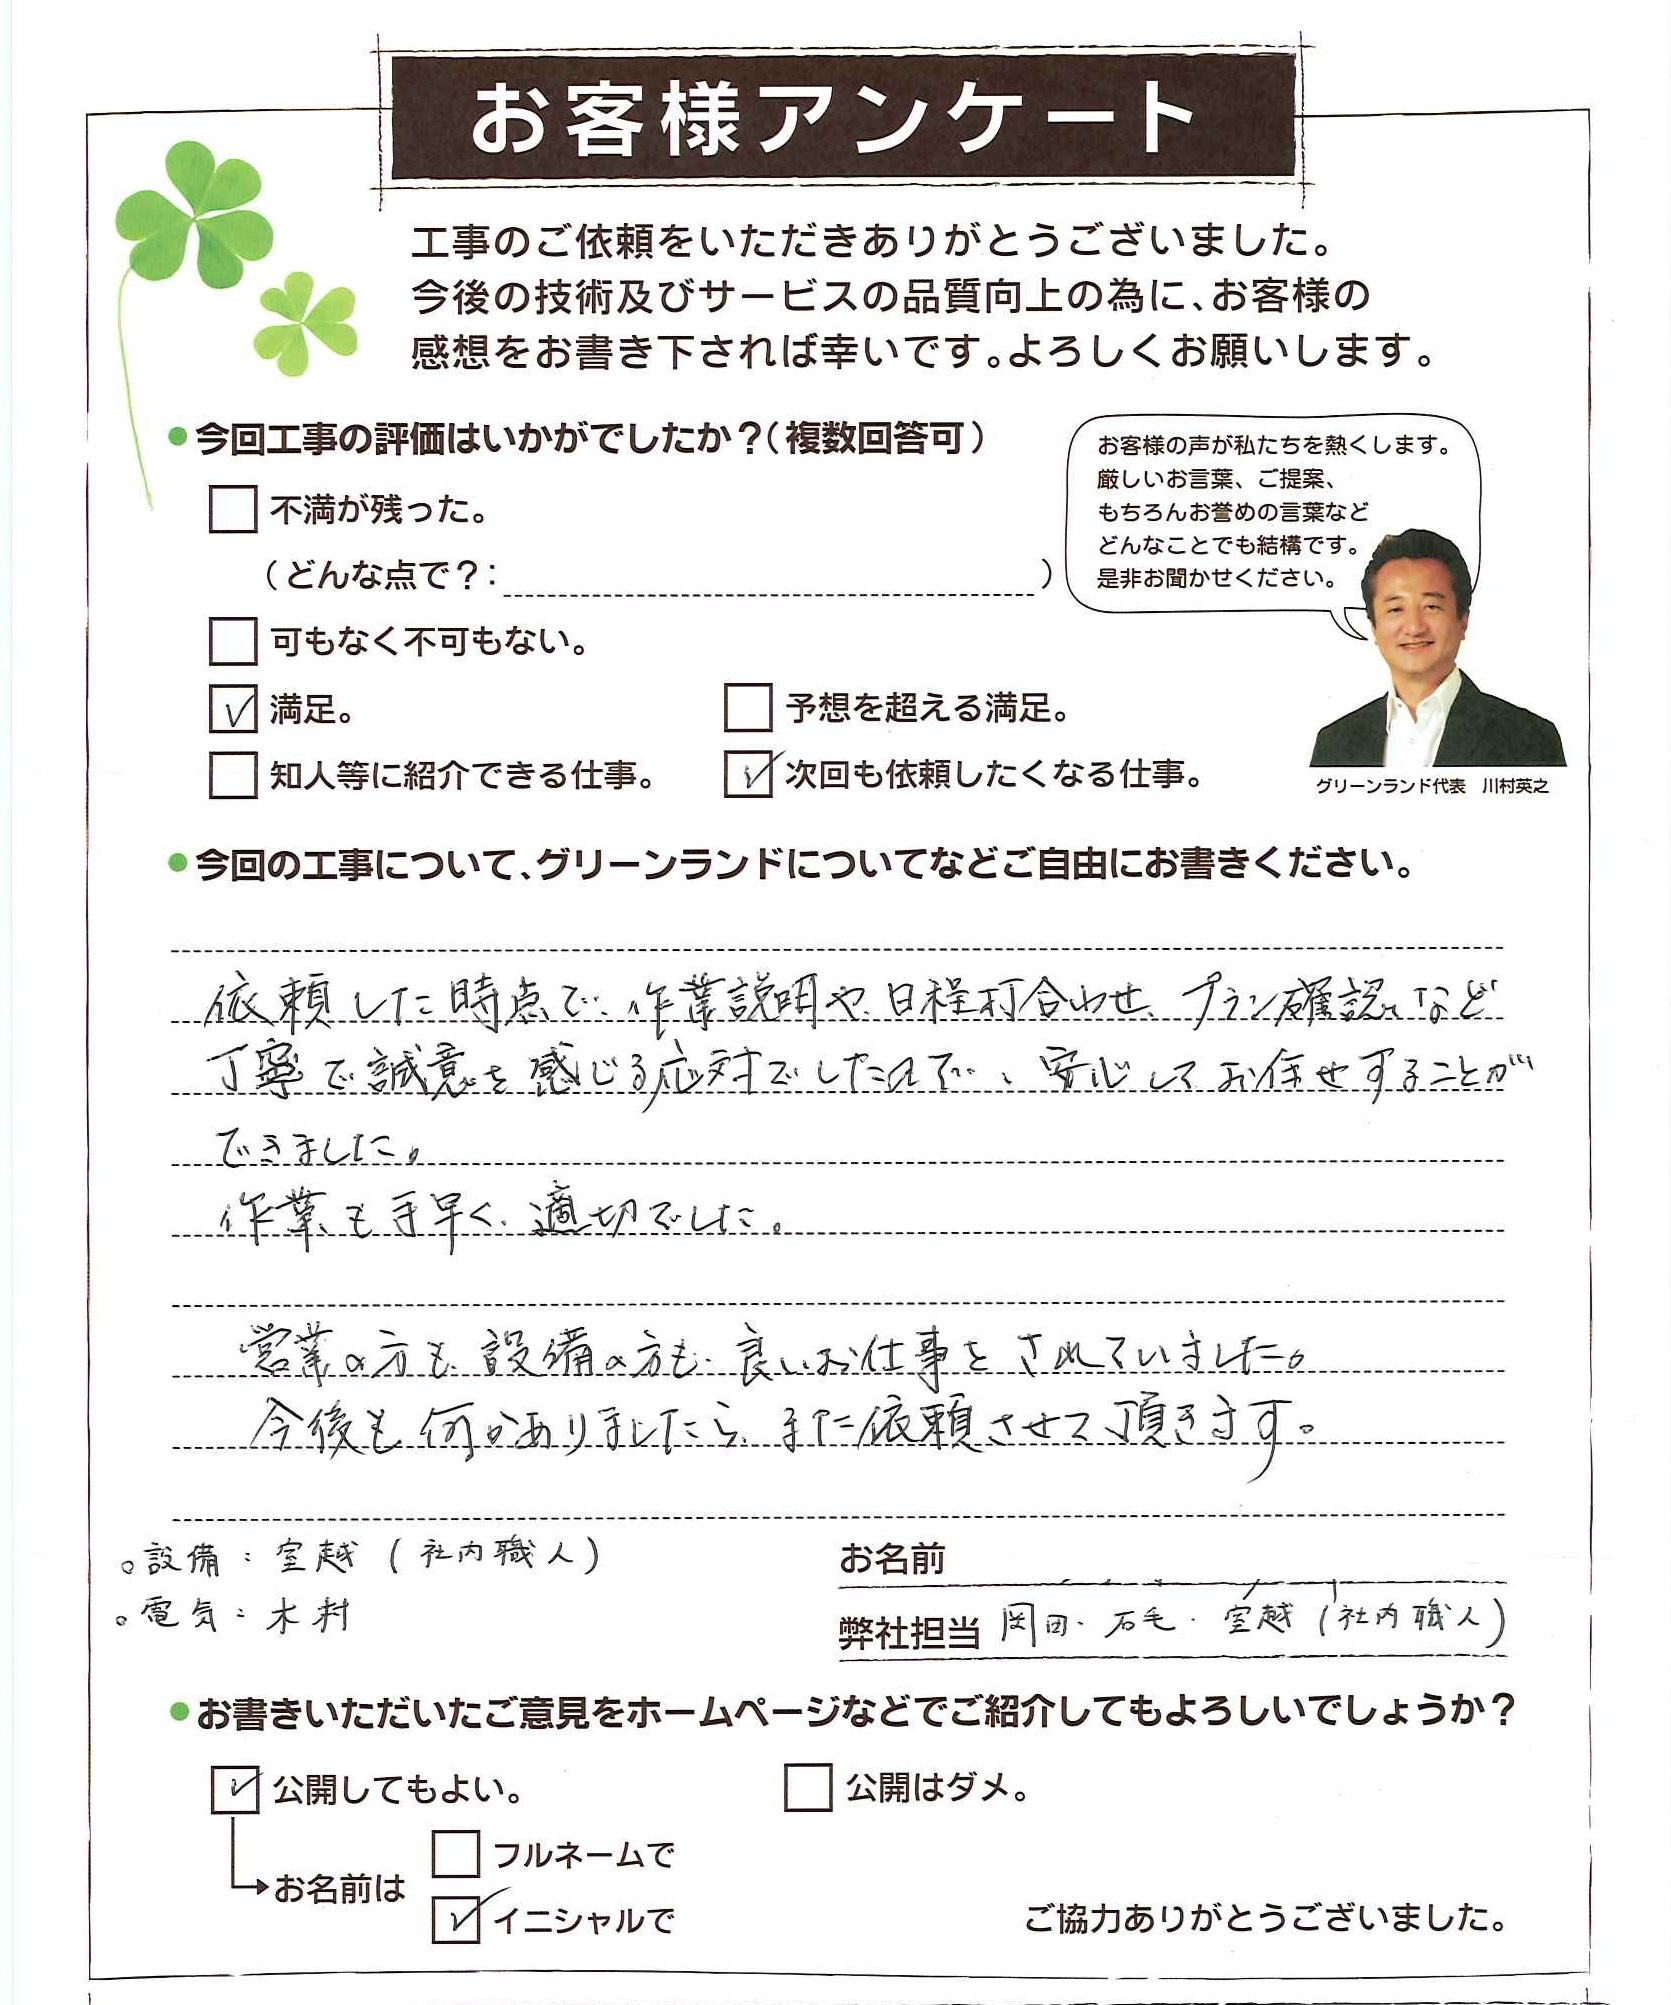 お客様アンケート
工事のご依頼をいただきありがとうございました。
今後の技術及びサービスの品質向上の為に、お客様の
感想をお書き下されば幸いです。よろしくお願いします。
●今回工事の評価はいかがでしたか？（複数回答可）
お客様の声が私たちを熱くします。
厳しいお言葉、ご提案、
もちろんお誉めの言葉など
どんなことでも結構です。
是非お聞かせください。
グリーンランド代表　川村英之
不満が残った。
（どんな点で？：　）
可もなく不可もない。
✓ 満足。
予想を超える満足。
知人等に紹介できる仕事。
✓ 次回も依頼したくなる仕事。
●今回の工事について、グリーンランドについてなどご自由にお書きください。
依頼した時点で、作業説明や、日程打合わせ、プラン確認など
丁寧で誠意を感じる応対でしたので、安心してお任せすることが
できました。
作業も手早く、適切でした。
営業の方も、設備の方も、良いお仕事をされていました。
今後も何かありましたら、また依頼させて頂きます。
。設備：室越（社内職人）
。電気：木村
お名前
弊社担当 岡田・石毛・室越（社内職人）
●お書きいただいたご意見をホームページなどでご紹介してもよろしいでしょうか？
✓ 公開してもよい。
公開はダメ。
お名前は
フルネームで
✓ イニシャルで
ご協力ありがとうございました。